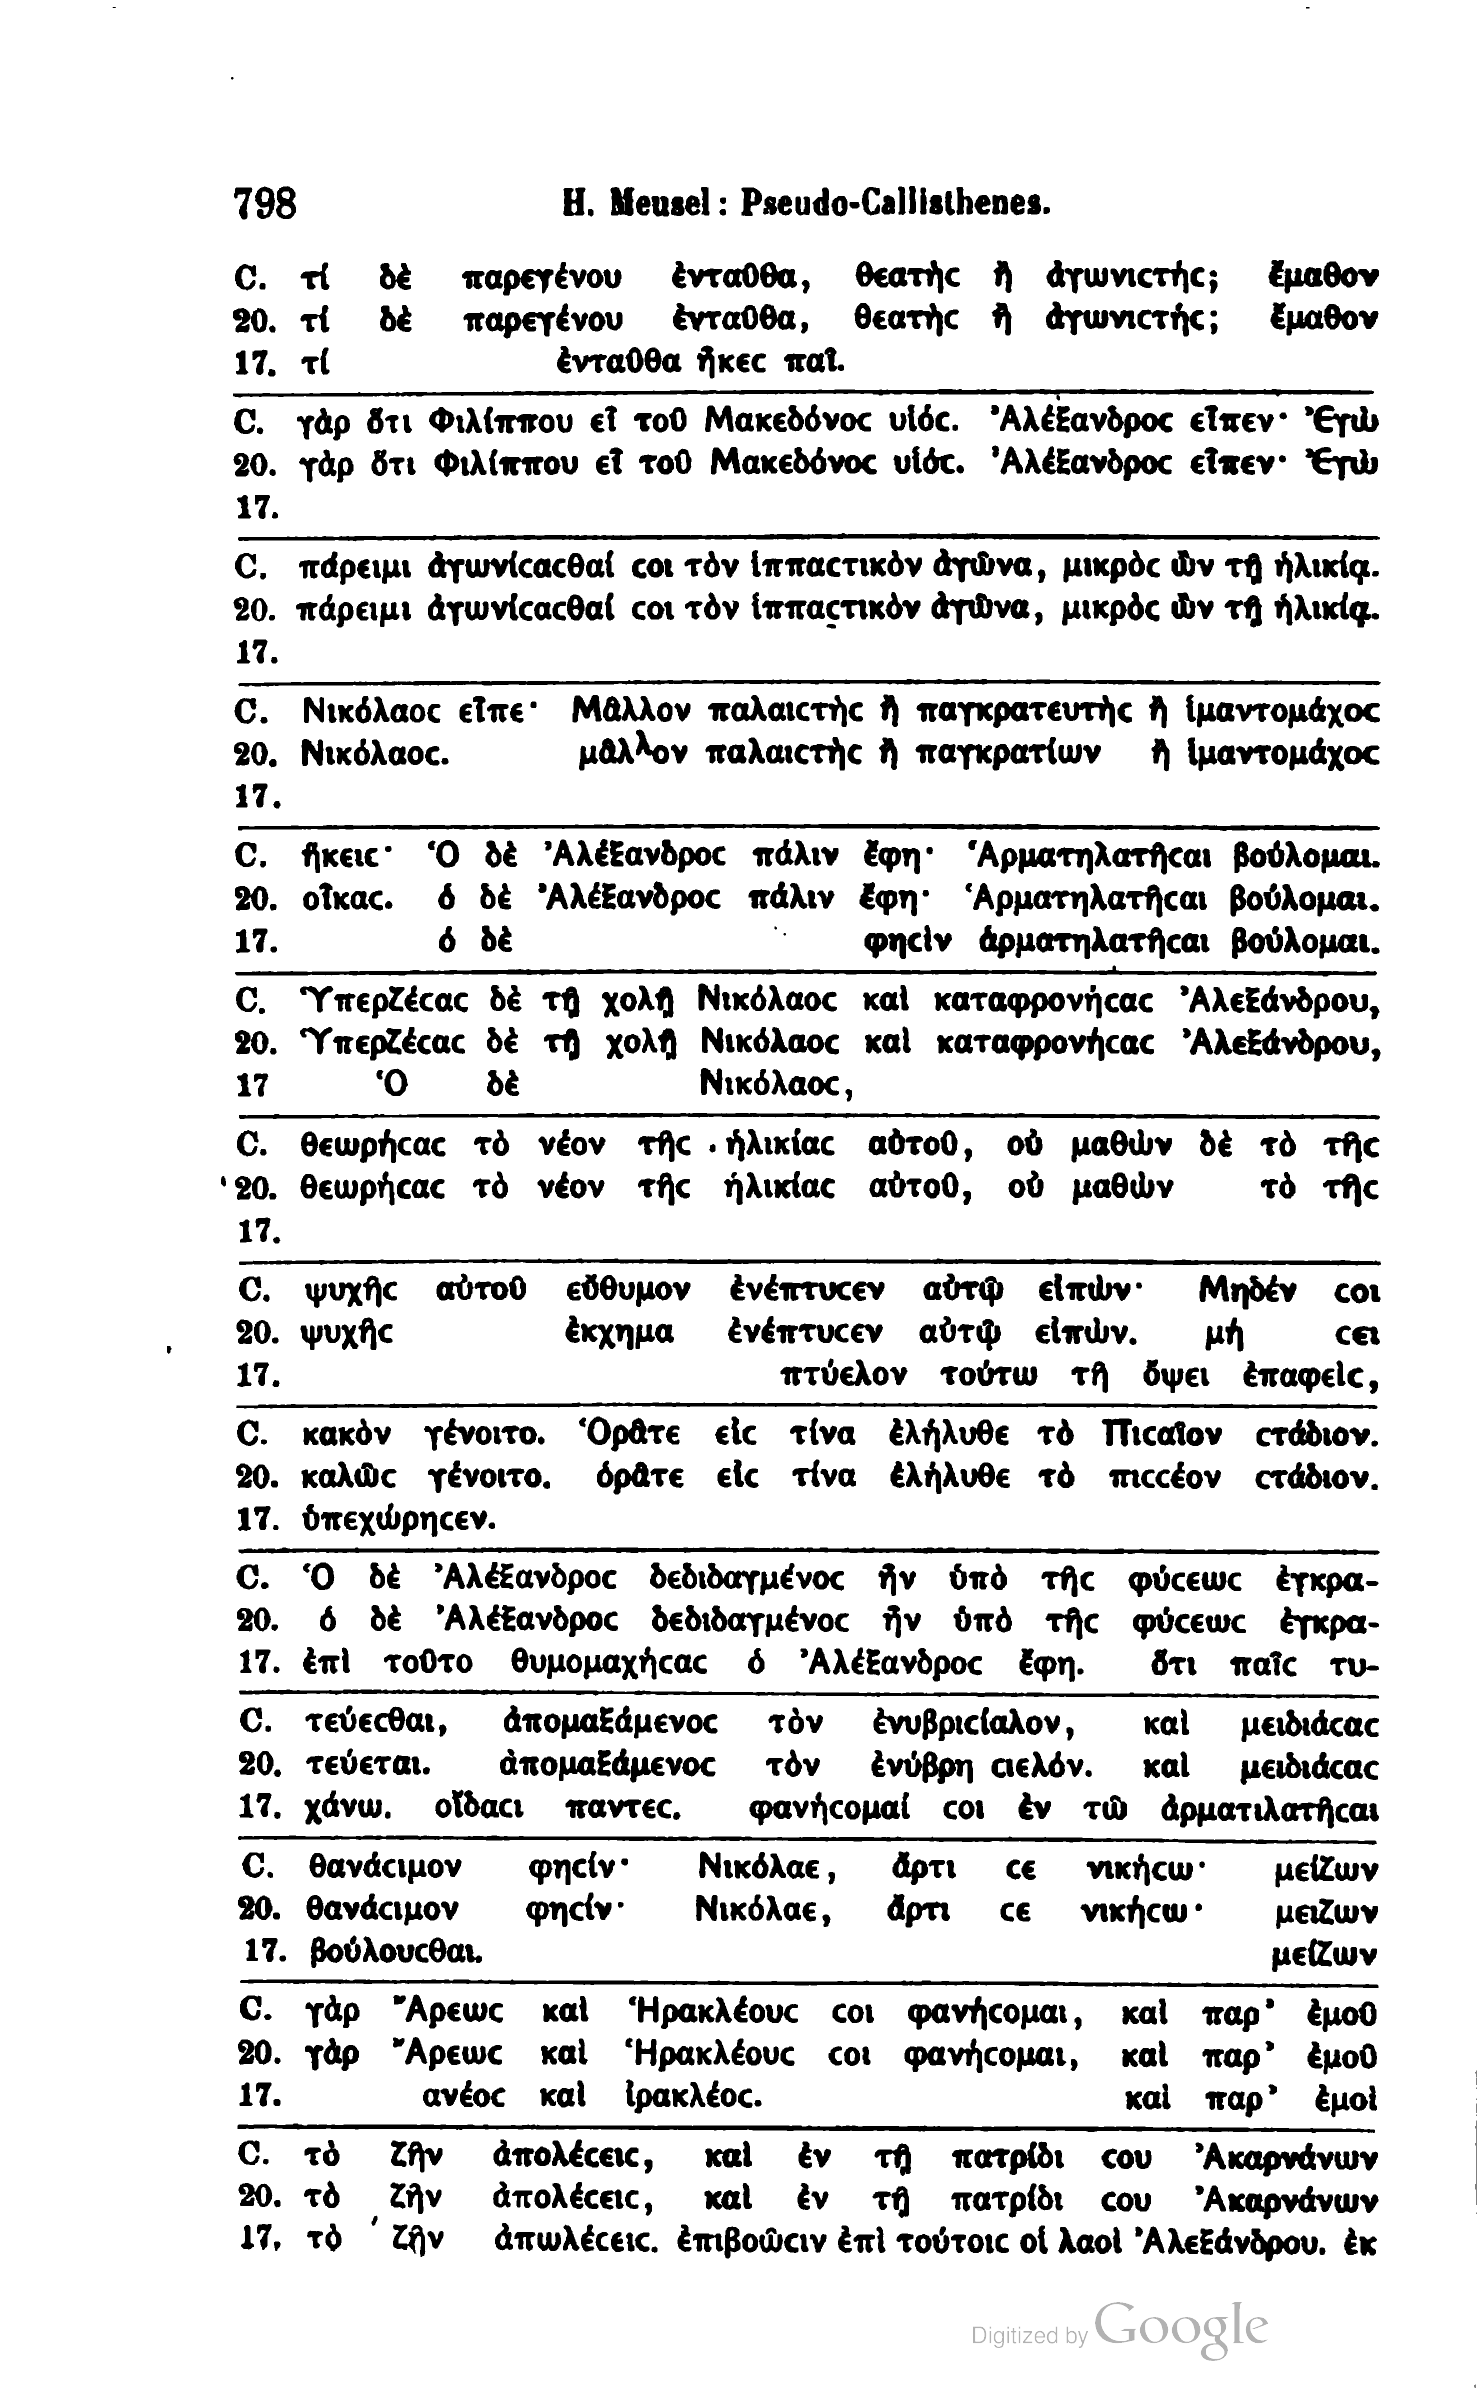 798 H. Meusel: Pseudo-Callisthenes.
C. τί δὲ παρεγένου ἐνταῦθα, θεατὴϲ ἢ ἀγωνιϲτήϲ; ἔμαθον
20. τί δὲ παρεγένου ἐνταῦθα, θεατὴϲ ἢ ἀγωνιϲτήϲ; ἔμαθον
17. τί ἐνταῦθα ἧκεϲ παῖ.
C. γὰρ ὅτι Φιλίππου εἶ τοῦ Μακεδόνοϲ υἱόϲ. Ἀλέξανδροϲ εἶπεν· Ἐγὼ
20. γὰρ ὅτι Φιλίππου εἶ τοῦ Μακεδόνοϲ υἱόϲ. Ἀλέξανδροϲ εἶπεν· Ἐγὼ
17.
C. πάρειμι ἀγωνίϲαϲθαί ϲοι τὸν ἱππαϲτικὸν ἀγῶνα, μικρὸϲ ὢν τῇ ἡλικίᾳ.
20. πάρειμι ἀγωνίϲαϲθαί ϲοι τὸν ἱππαϲτικὸν ἀγῶνα, μικρὸϲ ὢν τῇ ἡλικίᾳ.
17.
C. Νικόλαοϲ εἶπε· Μᾶλλον παλαιϲτὴϲ ἢ παγκρατευτὴϲ ἢ ἱμαντομάχοϲ
20. Νικόλαοϲ. μᾶλλον παλαιϲτὴϲ ἢ παγκρατίων ἢ ἱμαντομάχοϲ
17.
C. ἥκειϲ· Ὁ δὲ Ἀλέξανδροϲ πάλιν ἔφη· Ἁρματηλατῆϲαι βούλομαι.
20. οἶκαϲ. ὁ δὲ Ἀλέξανδροϲ πάλιν ἔφη· Ἁρματηλατῆϲαι βούλομαι.
17. ὁ δὲ φηϲὶν ἁρματηλατῆϲαι βούλομαι.
C. Ὑπερζέϲαϲ δὲ τῇ χολῇ Νικόλαοϲ καὶ καταφρονήϲαϲ Ἀλεξάνδρου,
20. Ὑπερζέϲαϲ δὲ τῇ χολῇ Νικόλαοϲ καὶ καταφρονήϲαϲ Ἀλεξάνδρου,
17 Ὁ δὲ Νικόλαοϲ,
C. θεωρήϲαϲ τὸ νέον τῆϲ ἡλικίαϲ αὐτοῦ, οὐ μαθὼν δὲ τὸ τῆϲ
20. θεωρήϲαϲ τὸ νέον τῆϲ ἡλικίαϲ αὐτοῦ, οὐ μαθὼν τὸ τῆϲ
17.
C. ψυχῆϲ αὐτοῦ εὔθυμον ἐνέπτυϲεν αὐτῷ εἰπών· Μηδέν ϲοι
20. ψυχῆϲ ἐκχημα ἐνέπτυϲεν αὐτῷ εἰπών. μή ϲει
17. πτύελον τούτω τῆ ὄψει ἐπαφεὶϲ,
C. κακὸν γένοιτο. Ὁρᾶτε εἰϲ τίνα ἐλήλυθε τὸ Πιϲαῖον ϲτάδιον.
20. καλῶϲ γένοιτο. ὁρᾶτε εἰϲ τίνα ἐλήλυθε τὸ πιϲϲέον ϲτάδιον.
17. ὑπεχώρηϲεν.
C. Ὁ δὲ Ἀλέξανδροϲ δεδιδαγμένοϲ ἦν ὑπὸ τῆϲ φύϲεωϲ ἐγκρα-
20. ὁ δὲ Ἀλέξανδροϲ δεδιδαγμένοϲ ἦν ὑπὸ τῆϲ φύϲεωϲ ἐγκρα-
17. ἐπὶ τοῦτο θυμομαχήϲαϲ ὁ Ἀλέξανδροϲ ἔφη. ὅτι παῖϲ τυ-
C. τεύεϲθαι, ἀπομαξάμενοϲ τὸν ἐνυβριϲίαλον, καὶ μειδιάϲαϲ
20. τεύεται. ἀπομαξάμενοϲ τὸν ἐνύβρη ϲιελόν. καὶ μειδιάϲαϲ
17. χάνω. οἴδαϲι παντεϲ. φανήϲομαί ϲοι ἐν τῶ ἁρματιλατῆϲαι
C. θανάϲιμον φηϲίν· Νικόλαε, ἄρτι ϲε νικήϲω· μείζων
20. θανάϲιμον φηϲίν· Νικόλαε, ἄρτι ϲε νικήϲω· μειζων
17. βούλουϲθαι. μείζων
C. γὰρ Ἄρεωϲ καὶ Ἡρακλέουϲ ϲοι φανήϲομαι, καὶ παρ᾽ ἐμοῦ
20. γὰρ Ἄρεωϲ καὶ Ἡρακλέουϲ ϲοι φανήϲομαι, καὶ παρ᾽ ἐμοῦ
17. ανέοϲ καὶ ἱρακλέοϲ. καὶ παρ᾽ ἐμοὶ
C. τὸ ζῆν ἀπολέϲειϲ, καὶ ἐν τῇ πατρίδι ϲου Ἀκαρνάνων
20. τὸ ζῆν ἀπολέϲειϲ, καὶ ἐν τῇ πατρίδι ϲου Ἀκαρνάνων
17. τὸ ζῆν ἀπωλέϲειϲ. ἐπιβοῶϲιν ἐπὶ τούτοιϲ οἱ λαοὶ Ἀλεξάνδρου. ἐκ
Digitized by Google